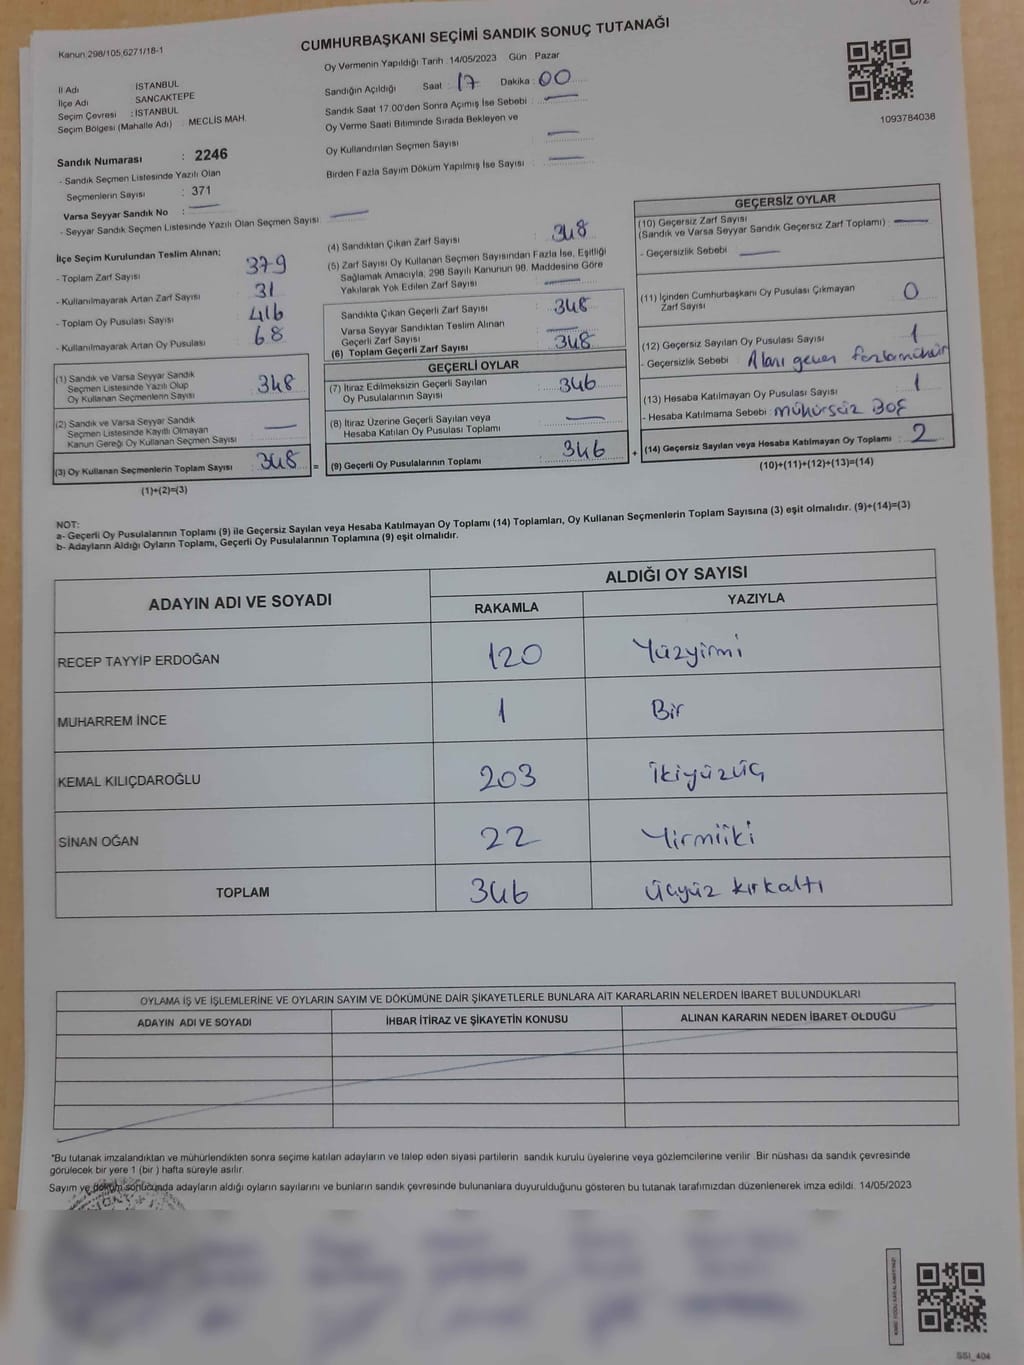 Kanun 298/105,6271/18-1
CUMHURBAŞKANI SEÇİMİ SANDIK SONUÇ TUTANAĞI
Oy Vermenin Yapıldığı Tarih :14/05/2023 Gün : Pazar
İl Adı : İSTANBUL
İlçe Adı : SANCAKTEPE
Seçim Çevresi : İSTANBUL
Seçim Bölgesi (Mahalle Adı) : MECLİS MAH.
Sandık Numarası : 2246
- Sandık Seçmen Listesinde Yazılı Olan
Seçmenlerin Sayısı : 371
Varsa Seyyar Sandık No : —
- Seyyar Sandık Seçmen Listesinde Yazılı Olan Seçmen Sayısı : —
Sandığın Açıldığı Saat : 17 Dakika : 00
Sandık Saat 17.00'den Sonra Açımış İse Sebebi : —
Oy Verme Saati Bitiminde Sırada Bekleyen ve
Oy Kullandırılan Seçmen Sayısı : —
Birden Fazla Sayım Döküm Yapılmış İse Sayısı : —
1093784038
İlçe Seçim Kurulundan Teslim Alınan;
- Toplam Zarf Sayısı : 379
- Kullanılmayarak Artan Zarf Sayısı : 31
- Toplam Oy Pusulası Sayısı : 416
- Kullanılmayarak Artan Oy Pusulası : 68
(1) Sandık ve Varsa Seyyar Sandık
Seçmen Listesinde Yazılı Olup
Oy Kullanan Seçmenlerin Sayısı : 348
(2) Sandık ve Varsa Seyyar Sandık
Seçmen Listesinde Kayıtlı Olmayan
Kanun Gereği Oy Kullanan Seçmen Sayısı : —
(3) Oy Kullanan Seçmenlerin Toplam Sayısı : 348 =
(1)+(2)=(3)
(4) Sandıktan Çıkan Zarf Sayısı : 348
(5) Zarf Sayısı Oy Kullanan Seçmen Sayısından Fazla İse, Eşitliği
Sağlamak Amacıyla; 298 Sayılı Kanunun 98. Maddesine Göre
Yakılarak Yok Edilen Zarf Sayısı : —
Sandıkta Çıkan Geçerli Zarf Sayısı : 348
Varsa Seyyar Sandıktan Teslim Alınan
Geçerli Zarf Sayısı : —
(6) Toplam Geçerli Zarf Sayısı : 348
GEÇERLİ OYLAR
(7) İtiraz Edilmeksizin Geçerli Sayılan
Oy Pusulalarının Sayısı : 346
(8) İtiraz Üzerine Geçerli Sayılan veya
Hesaba Katılan Oy Pusulası Toplamı : —
(9) Geçerli Oy Pusulalarının Toplamı : 346 +
GEÇERSİZ OYLAR
(10) Geçersiz Zarf Sayısı
(Sandık ve Varsa Seyyar Sandık Geçersiz Zarf Toplamı) : —
- Geçersizlik Sebebi : —
(11) İçinden Cumhurbaşkanı Oy Pusulası Çıkmayan
Zarf Sayısı : 0
(12) Geçersiz Sayılan Oy Pusulası Sayısı : 1
- Geçersizlik Sebebi : Alanı geçen fazlamühür
(13) Hesaba Katılmayan Oy Pusulası Sayısı : 1
- Hesaba Katılmama Sebebi : mühürsüz Boş
(14) Geçersiz Sayılan veya Hesaba Katılmayan Oy Toplamı : 2
(10)+(11)+(12)+(13)=(14)
NOT:
a- Geçerli Oy Pusulalarının Toplamı (9) ile Geçersiz Sayılan veya Hesaba Katılmayan Oy Toplamı (14) Toplamları, Oy Kullanan Seçmenlerin Toplam Sayısına (3) eşit olmalıdır. (9)+(14)=(3)
b- Adayların Aldığı Oyların Toplamı, Geçerli Oy Pusulalarının Toplamına (9) eşit olmalıdır.
ADAYIN ADI VE SOYADI
ALDIĞI OY SAYISI
RAKAMLA YAZIYLA
RECEP TAYYİP ERDOĞAN 120 Yüzyirmi
MUHARREM İNCE 1 Bir
KEMAL KILIÇDAROĞLU 203 ikiyüzüç
SİNAN OĞAN 22 Yirmiiki
TOPLAM 346 üçyüz kırkaltı
OYLAMA İŞ VE İŞLEMLERİNE VE OYLARIN SAYIM VE DÖKÜMÜNE DAİR ŞİKAYETLERLE BUNLARA AİT KARARLARIN NELERDEN İBARET BULUNDUKLARI
ADAYIN ADI VE SOYADI İHBAR İTİRAZ VE ŞİKAYETİN KONUSU ALINAN KARARIN NEDEN İBARET OLDUĞU
*Bu tutanak imzalandıktan ve mühürlendikten sonra seçime katılan adayların ve talep eden siyasi partilerin sandık kurulu üyelerine veya gözlemcilerine verilir. Bir nüshası da sandık çevresinde
görülecek bir yere 1 (bir ) hafta süreyle asılır.
Sayım ve döküm sonucunda adayların aldığı oyların sayılarını ve bunların sandık çevresinde bulunanlara duyurulduğunu gösteren bu tutanak tarafımızdan düzenlenerek imza edildi. 14/05/2023
SSI_404